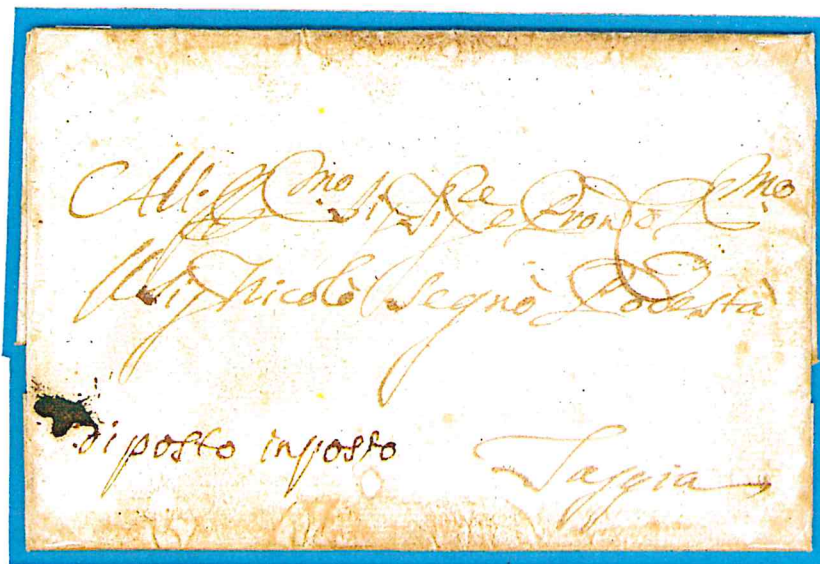 All. Ill.mo Sig. Sig.re e Pron. Col.mo
Il Sig. Nicolò Segnò Podestà
di posto in posto
Taggia